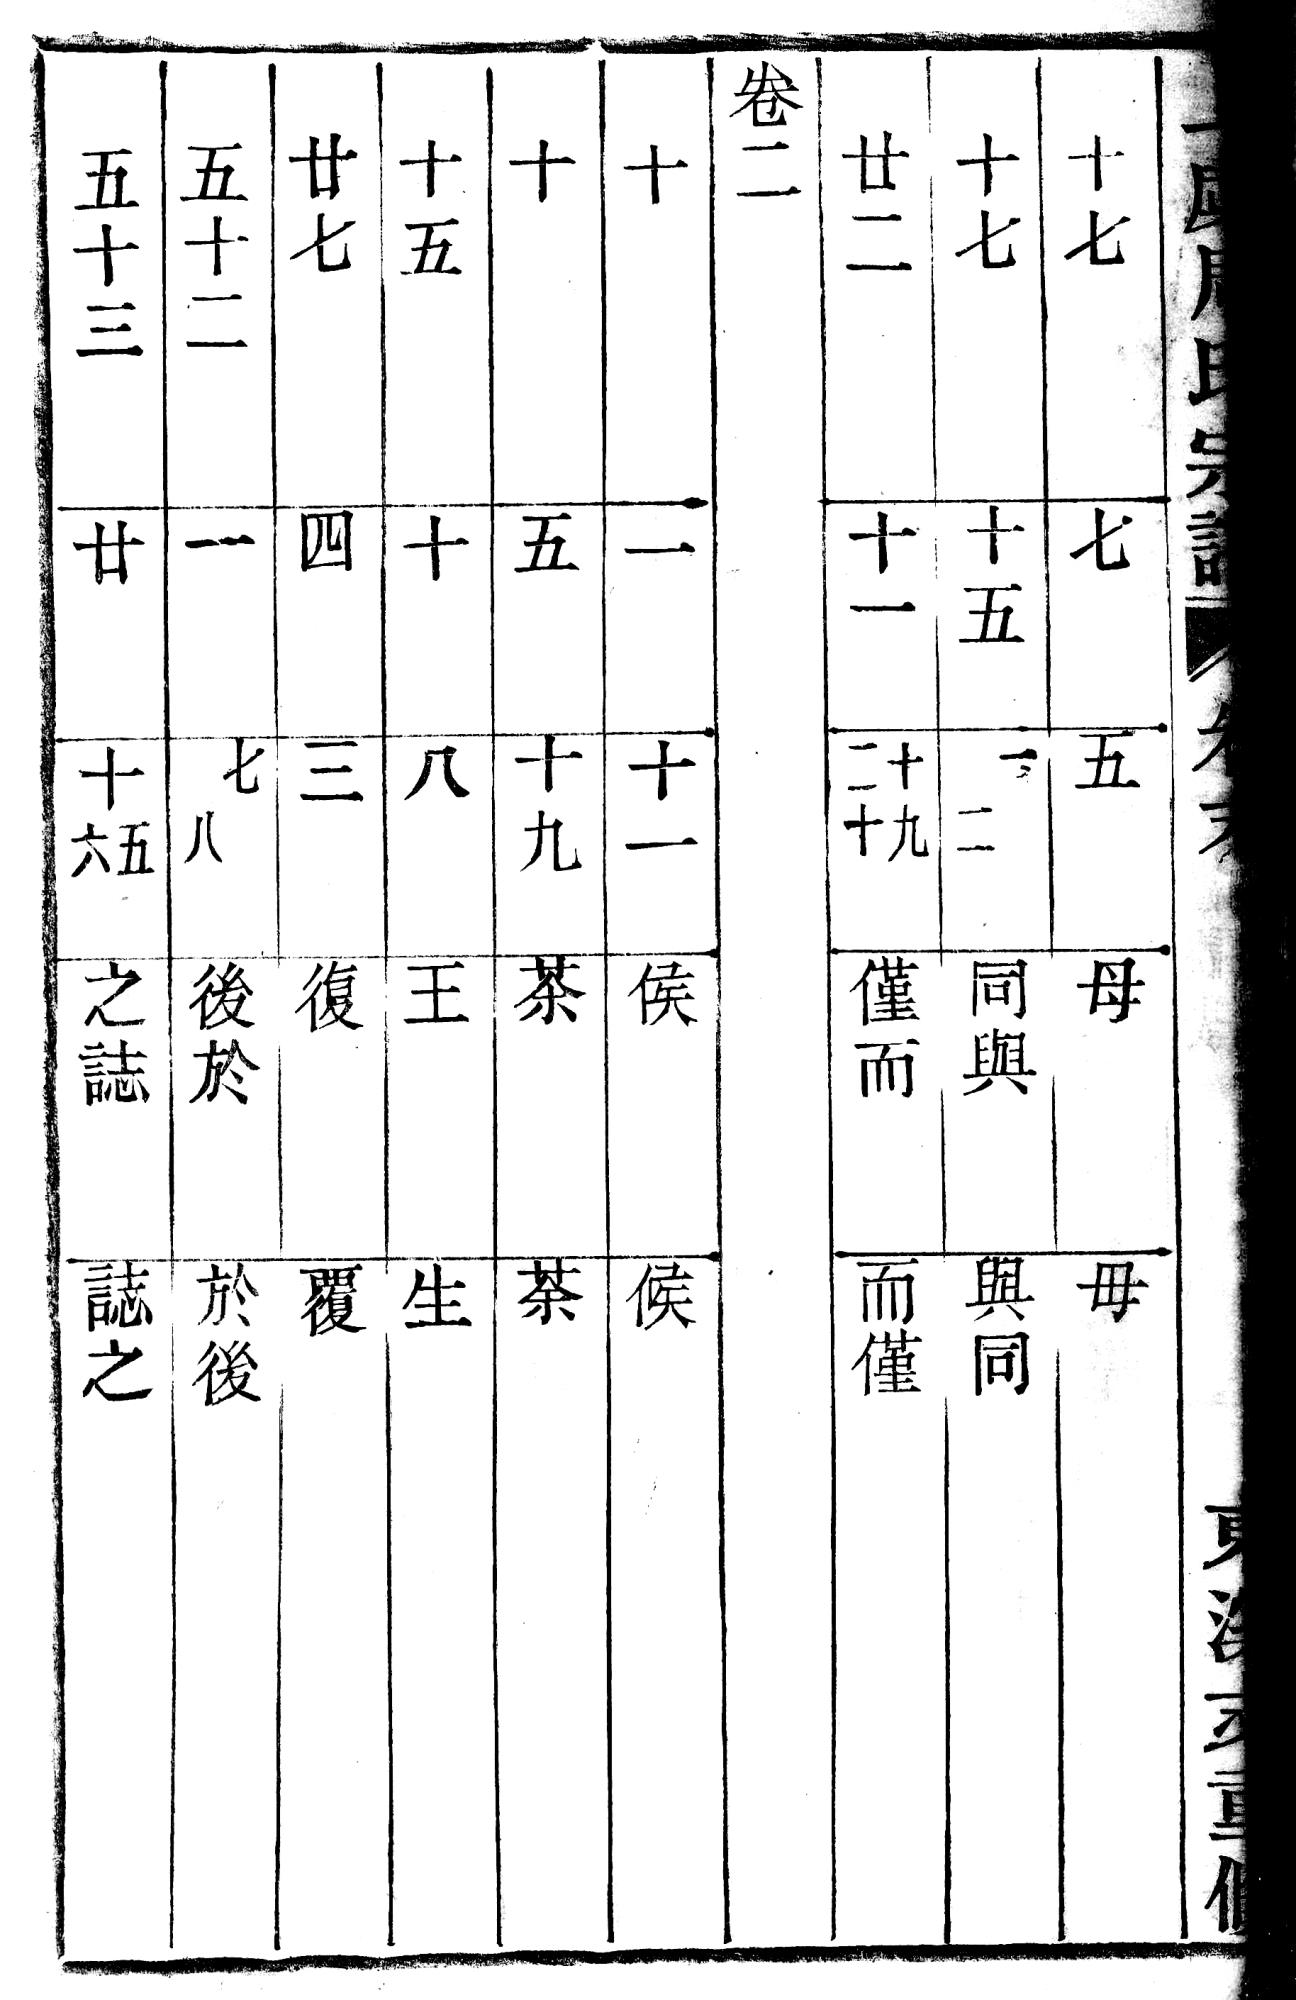 周氏宗譜 卷末
十七 七 五 母 毋
十七 十五 一二 同與 與同
廿二 十一 十九二十 僅而 而僅
卷二
十 一 十一 侯 候
十 五 十九 茶 荼
十五 十 八 王 生
廿七 四 三 復 覆
五十二 一 七八 後於 於後
五十三 廿 十五六 之誌 誌之